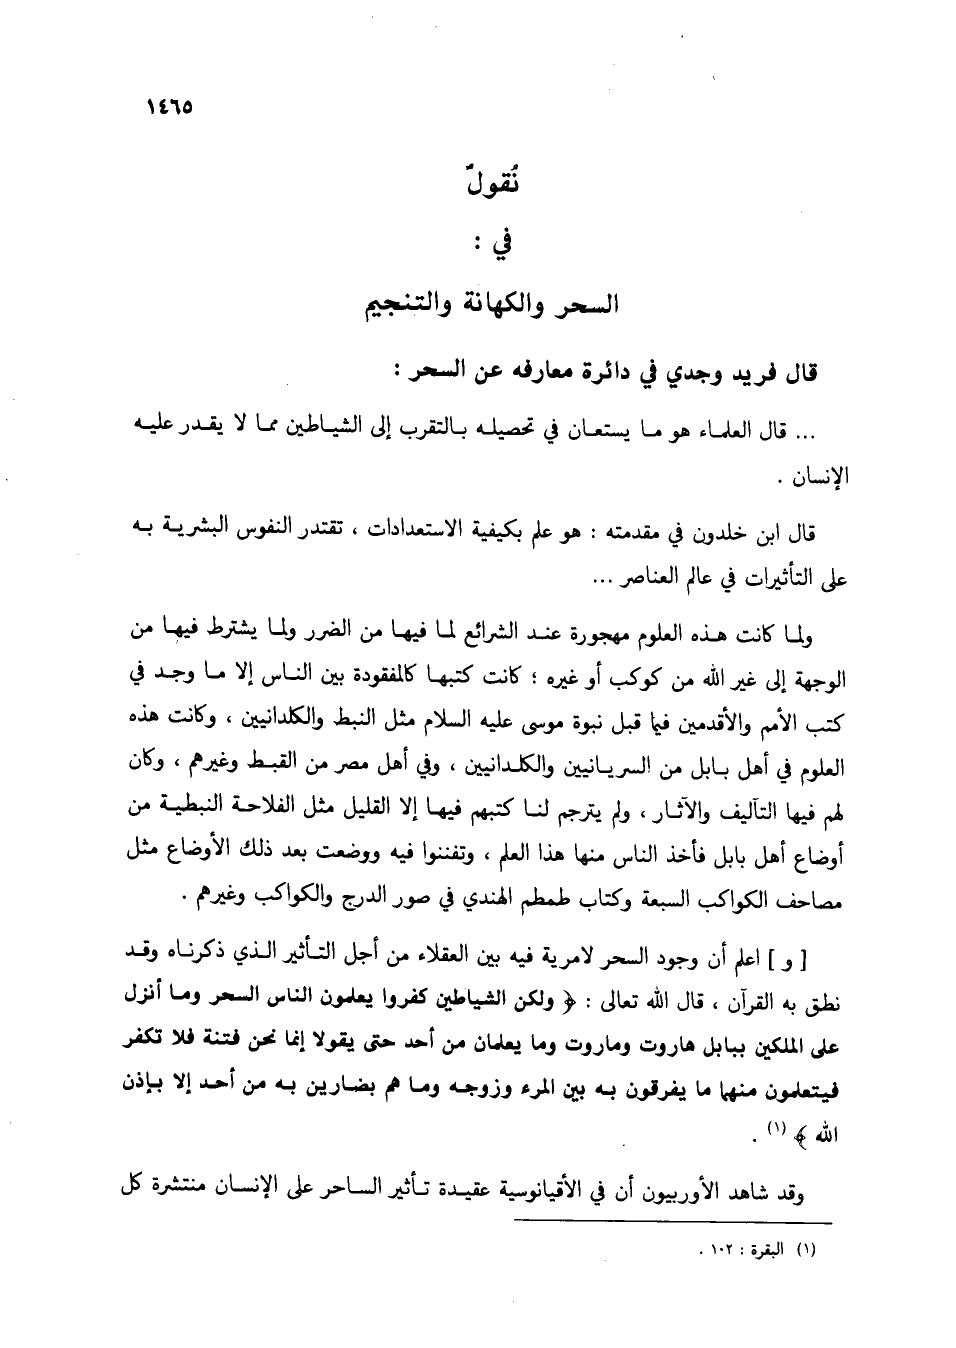 ١٤٦٥
نُقولٌ
في :
السحر والكهانة والتنجيم
قال فريد وجدي في دائرة معارفه عن السحر :
... قال العلماء هو ما يستعان في تحصيله بالتقرب إلى الشياطين مما لا يقدر عليه
الإنسان .
قال ابن خلدون في مقدمته : هو علم بكيفية الاستعدادات ، تقتدر النفوس البشرية به
على التأثيرات في عالم العناصر ...
ولما كانت هذه العلوم مهجورة عند الشرائع لما فيها من الضرر ولما يشترط فيها من
الوجهة إلى غير الله من كوكب أو غيره ؛ كانت كتبها كالمفقودة بين الناس إلا ما وجد في
كتب الأمم والأقدمين فيما قبل نبوة موسى عليه السلام مثل النبط والكلدانيين ، وكانت هذه
العلوم في أهل بابل من السريانيين والكلدانيين ، وفي أهل مصر من القبط وغيرهم ، وكان
لهم فيها التآليف والآثار ، ولم يترجم لنا كتبهم فيها إلا القليل مثل الفلاحة النبطية من
أوضاع أهل بابل فأخذ الناس منها هذا العلم ، وتفننوا فيه ووضعت بعد ذلك الأوضاع مثل
مصاحف الكواكب السبعة وكتاب طمطم الهندي في صور الدرج والكواكب وغيرهم .
[ و ] اعلم أن وجود السحر لامرية فيه بين العقلاء من أجل التأثير الذي ذكرناه وقد
نطق به القرآن ، قال الله تعالى : ﴿ ولكن الشياطين كفروا يعلمون الناس السحر وما أنزل
على الملكين ببابل هاروت وماروت وما يعلمان من أحد حتى يقولا إنما نحن فتنة فلا تكفر
فيتعلمون منهما ما يفرقون به بين المرء وزوجه وما هم بضارين به من أحد إلا بإذن
الله ﴾ (١) .
وقد شاهد الأوربيون أن في الأقيانوسية عقيدة تأثير الساحر على الإنسان منتشرة كل
(١) البقرة : ١٠٢ .